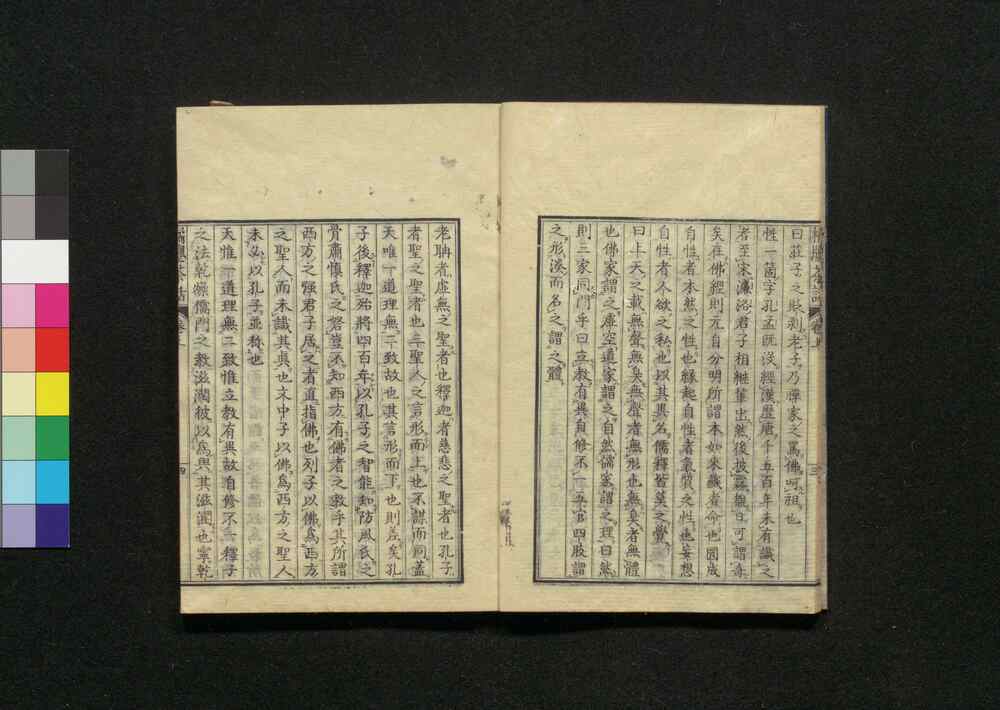 曰莊子之賊剥老子乃禪家之罵佛呵祖也
性一箇字孔孟既沒經漢歷唐千五百年未有識之
者至宋濂洛君子相繼輩出然後披雲覩日可謂
矣在佛經則元自分明所謂本如來藏者命也圓成
自性者本然之性也縁起自性者氣質之性也妄想
自性者人欲之私也以其異名儒釋皆莫之覺
曰上天之載無聲無臭無聲者無形也無臭者無體
也佛家謂之虚空道家謂之自然儒家謂之理曰然
則三家同門乎曰立教有異自修不一五官四肢謂
之形湊而名之謂之體
老聃者虚無之聖者也釋迦者慈悲之聖者也孔子
者聖之聖者也三聖人之言形而上也不謀而同蓋
天唯一道理無二致故也其言形而下也則差矣孔
子後釋迦殆將四百年以孔子之智能知防風氏之
骨肅慎氏之弩豈不知西方有佛者之教乎其所謂
西方之强君子居之者直指佛也列子以佛爲西方
之聖人而未識其眞也文中子以佛爲西方之聖人
未必以孔子並稱也
天惟一道理無二致惟立教有異故自修不一釋子
之法乾燥儒門之教滋潤彼以爲與其滋潤也寧乾
四